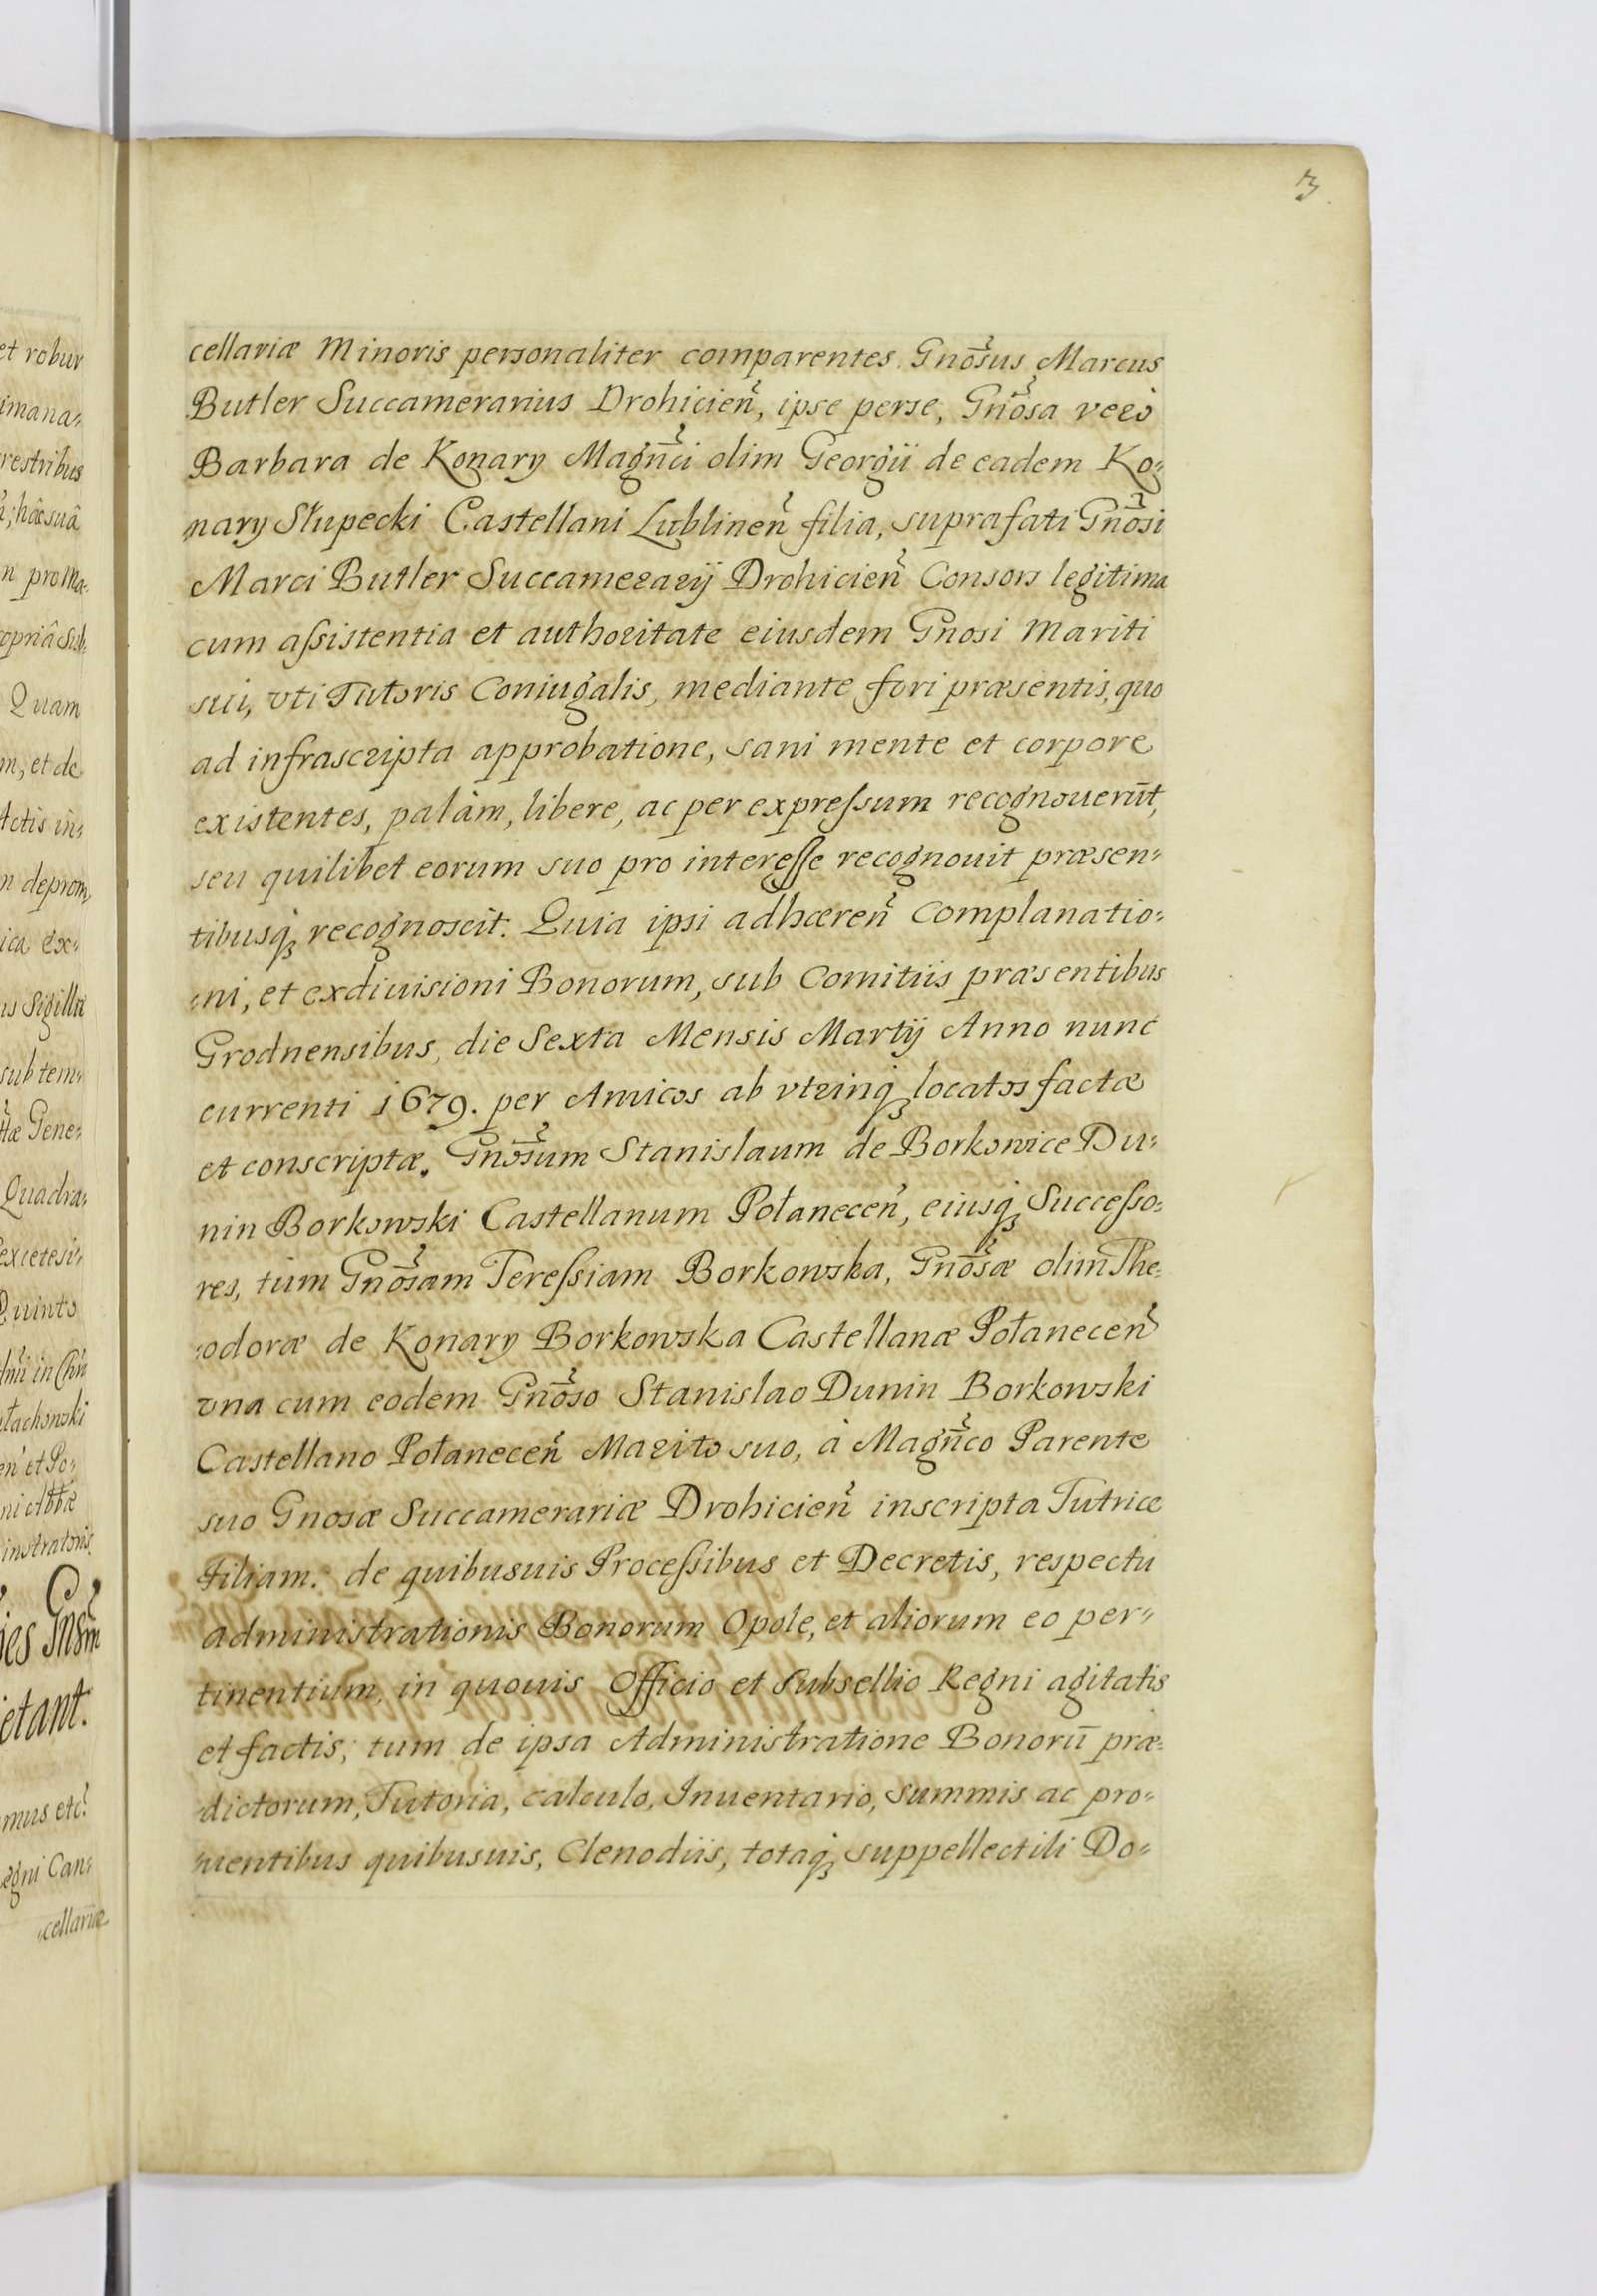 3.
cellariæ Minoris personaliter comparentes. Gnõsus Marcus
Butler Succamerarius Drohicieñ, ipse perse, Gnõsa verò
Barbara de Konary Magñci olim Georgii de eadem Ko=
nary Słupecki Castellani Lublineñ filia, suprafati Gnõsi
Marci Butler Succamerarij Drohicieñ Consors legitima
cum aſsistentia et authoritate eiusdem Gnosi Mariti
sui, vti Tutoris Coniugalis, mediante fori præsentis, quo
ad infrascripta approbatione, sani mente et corpore
existentes, palàm, libere, ac per expreſsum recognouerūt,
seu quilibet eorum suo pro intereſse recognouit præsen=
tibusq́ recognoscit. Quia ipsi adhæreñ Complanatio=
=ni, et exdiuisioni Bonorum, sub Comitiis præsentibus
Grodnensibus, die Sexta Mensis Martij Anno nunc
currenti 1679. per Amicos ab vtrinq́ locatos factæ
et conscriptæ. Gnõsum Stanislaum de Borkowice Du=
nin Borkowski Castellanum Połaneceñ, eiusq́ Succeſso=
res, tum Gnõsam Tereſsiam Borkowska, Gnõsæ olim The=
=odoræ de Konary Borkowska Castellanæ Połaneceñ
vna cum eodem Gnõso Stanislao Dunin Borkowski
Castellano Połaneceñ Marito suo, à Magñco Parente
suo Gnosæ Succamerariæ Drohicieñ inscripta Tutrice
Filiam. de quibusuis Proceſsibus et Decretis, respectu
administrationis Bonorum Opole, et aliorum eo per=
tinentium, in quouis Officio et Subsellio Regni agitatis
et factis; tum de ipsa Administratione Bonorū præ=
dictorum, Tutoria, calculo, Inuentario, summis ac pro=
=uentibus quibusuis, Clenodiis, totaq́ suppellectili Do=